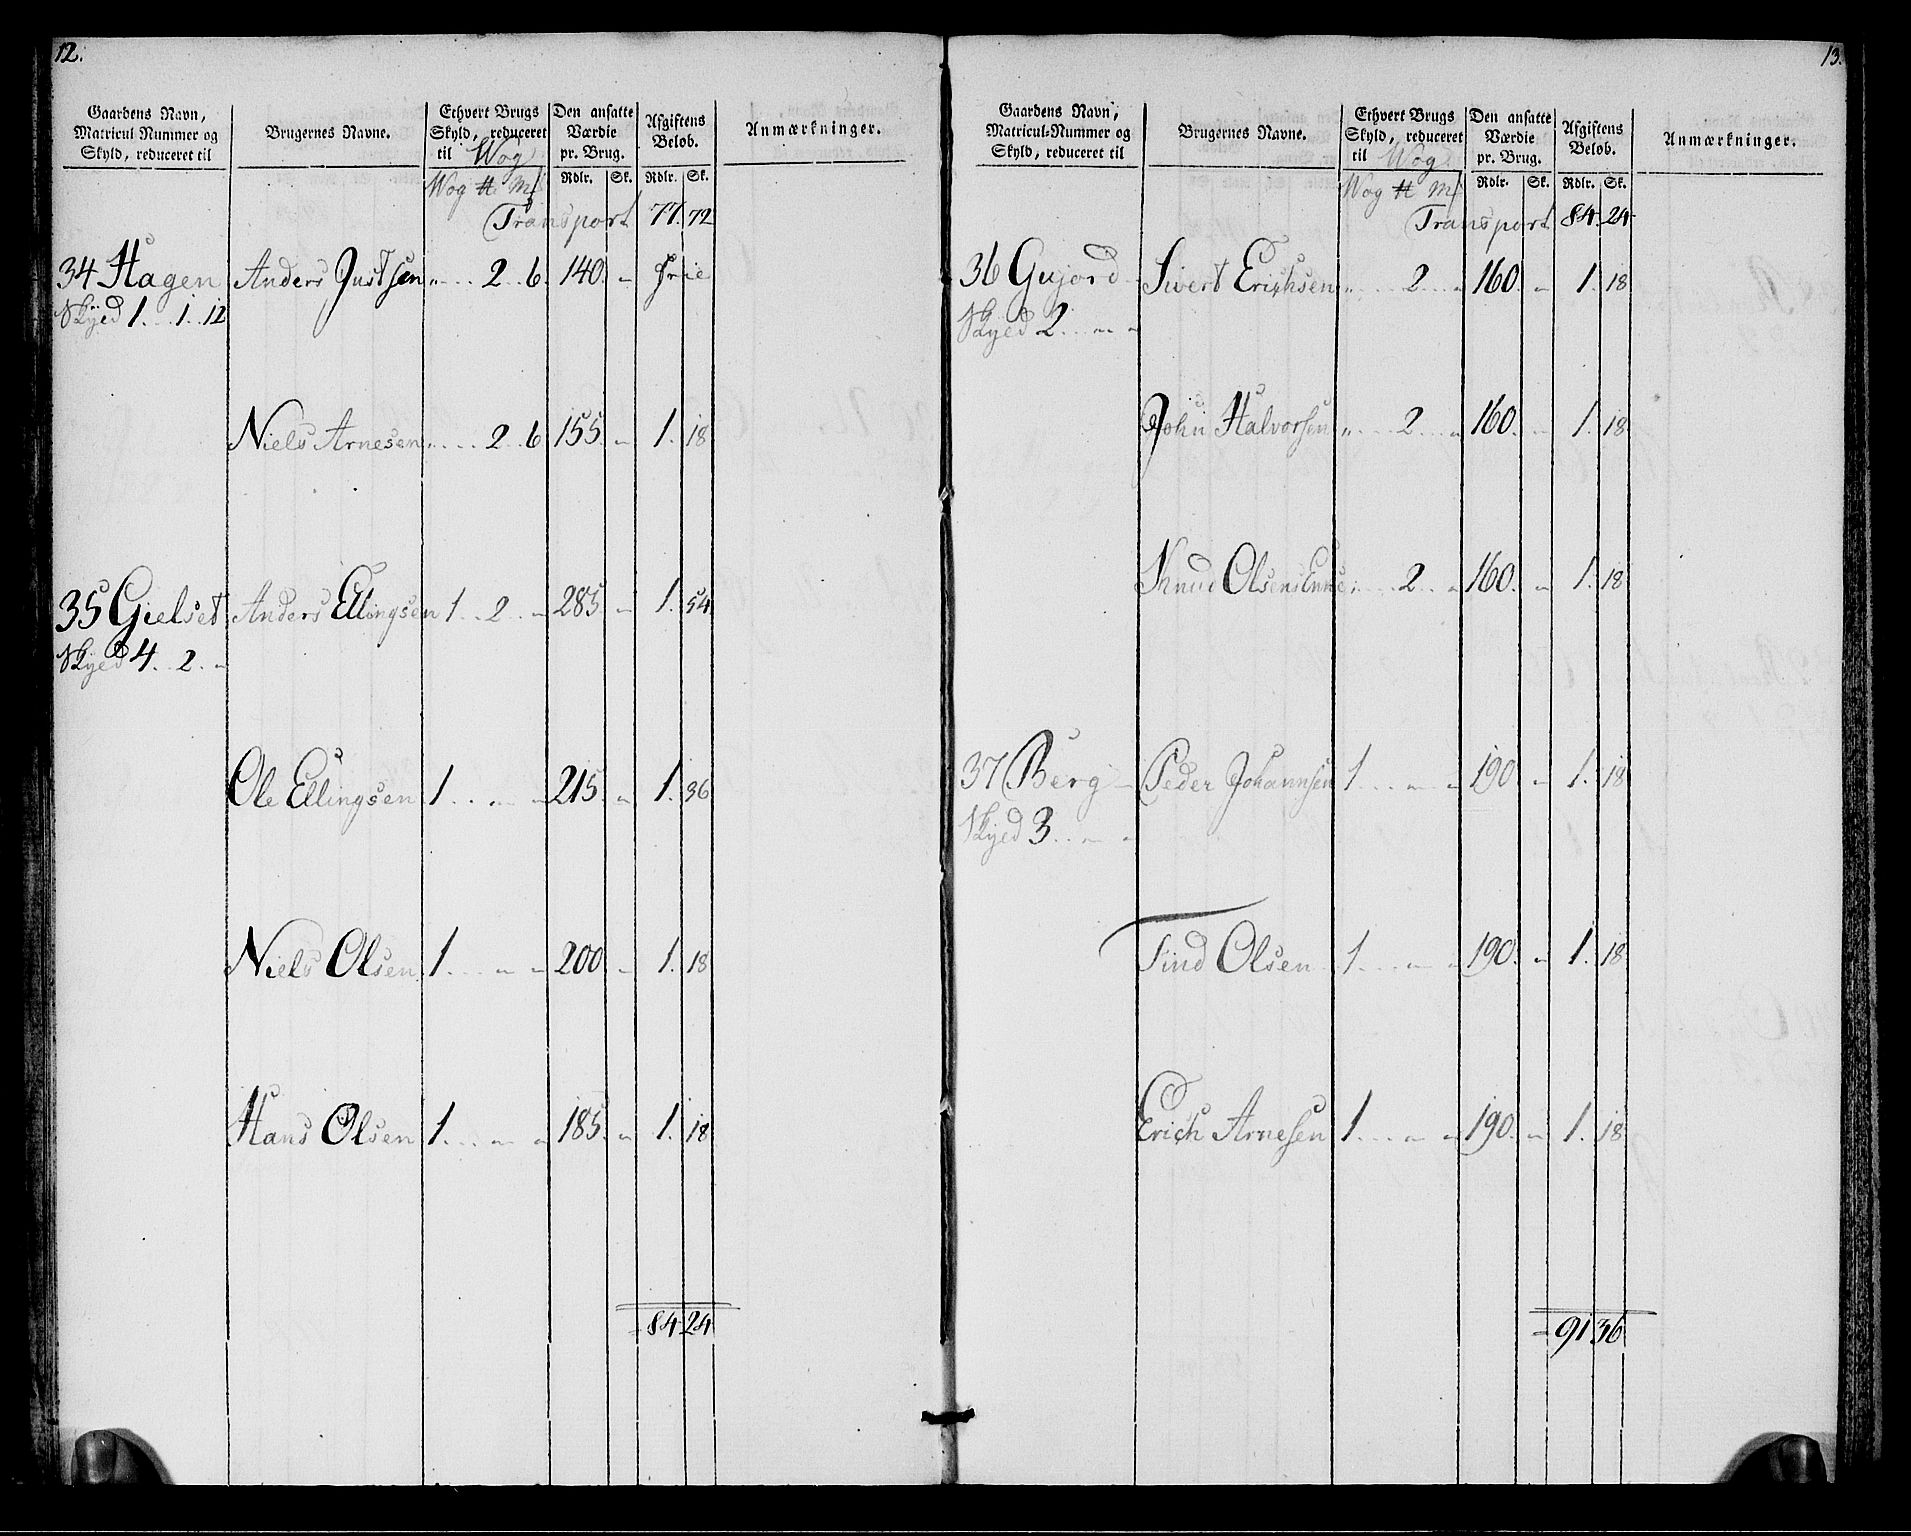 12.
Gaardens Navn, Matricul Nummer og Skyld, reduceret til | Brugernes Navne. | Ethvert Brugs Skyld, reduceret til Wog | Den ansatte Værdie pr. Brug. | Afgiftens Beløb. | Anmærkninger.
Wog ℔ Mk | Rdlr. | Sk. | Rdlr. | Sk.
Transport 77. 72
34 Hagen Anders Justsen „ . . . 2 . . 6. 140. „ frie
Skyed 1 . . . 1 . . 12
Niels Arnesen „ . . . 2 . . 6 155. „ 1. 18
35 Gielset Anders Ellingsen 1 . . 2 . . „ 285. „ 1. 54
Skyed 4 . . 2 . . „
Ole Ellingsen 1 . . „ . „ 215. „ 1. 36
Niels Olsen 1 . . . „ „ 200. „ 1. 18
Hans Olsen 1 . . . „ „ 185. „ 1. 18
84. 24
13.
Gaardens Navn, Matricul-Nummer og Skyld, reduceret til | Brugernes Navne. | Ethvert Brugs Skyld, reduceret til Wog | Den ansatte Værdie pr. Brug. | Afgiftens Beløb. | Anmærkninger.
Wog ℔ Mk | Rdlr. | Sk. | Rdlr. | Sk.
Transport 84. 24
36 Gujord Sivert Erichsen „ . . . 2 . . „ 160. „ 1. 18
Skyed 2 . . „ „
John Halvorsen „ . . . 2 . . „ 160. „ 1. 18
Knud Olsens Enke „ . . . 2 . . „ 160. „ 1. 18
37 Berg Peder Johannsen 1 . . . „ „ 190. „ 1. 18
Skyed 3 . . „ „
Find Olsen 1 . . . „ „ 190. „ 1. 18
Erich Arnesen 1 . . . „ „ 190. „ 1. 18
91 36